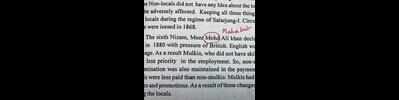 s Non-locals did not have any idea about the
be adversely affected. Keeping all those thing
locals during the regime of Salarjung-I. Circu
were issued in 1868.
Mahabub
The sixth Nizam, Meer Mohd Ali khan decl
in 1880 with pressure of British. English
age. As a result Mulkis, who did not have
less priority in the employment. So, non-
mination was also maintained in the payment
s were less paid than non-mulkis. Mulkis had
and promotions. As a result of these changes
g the locals.